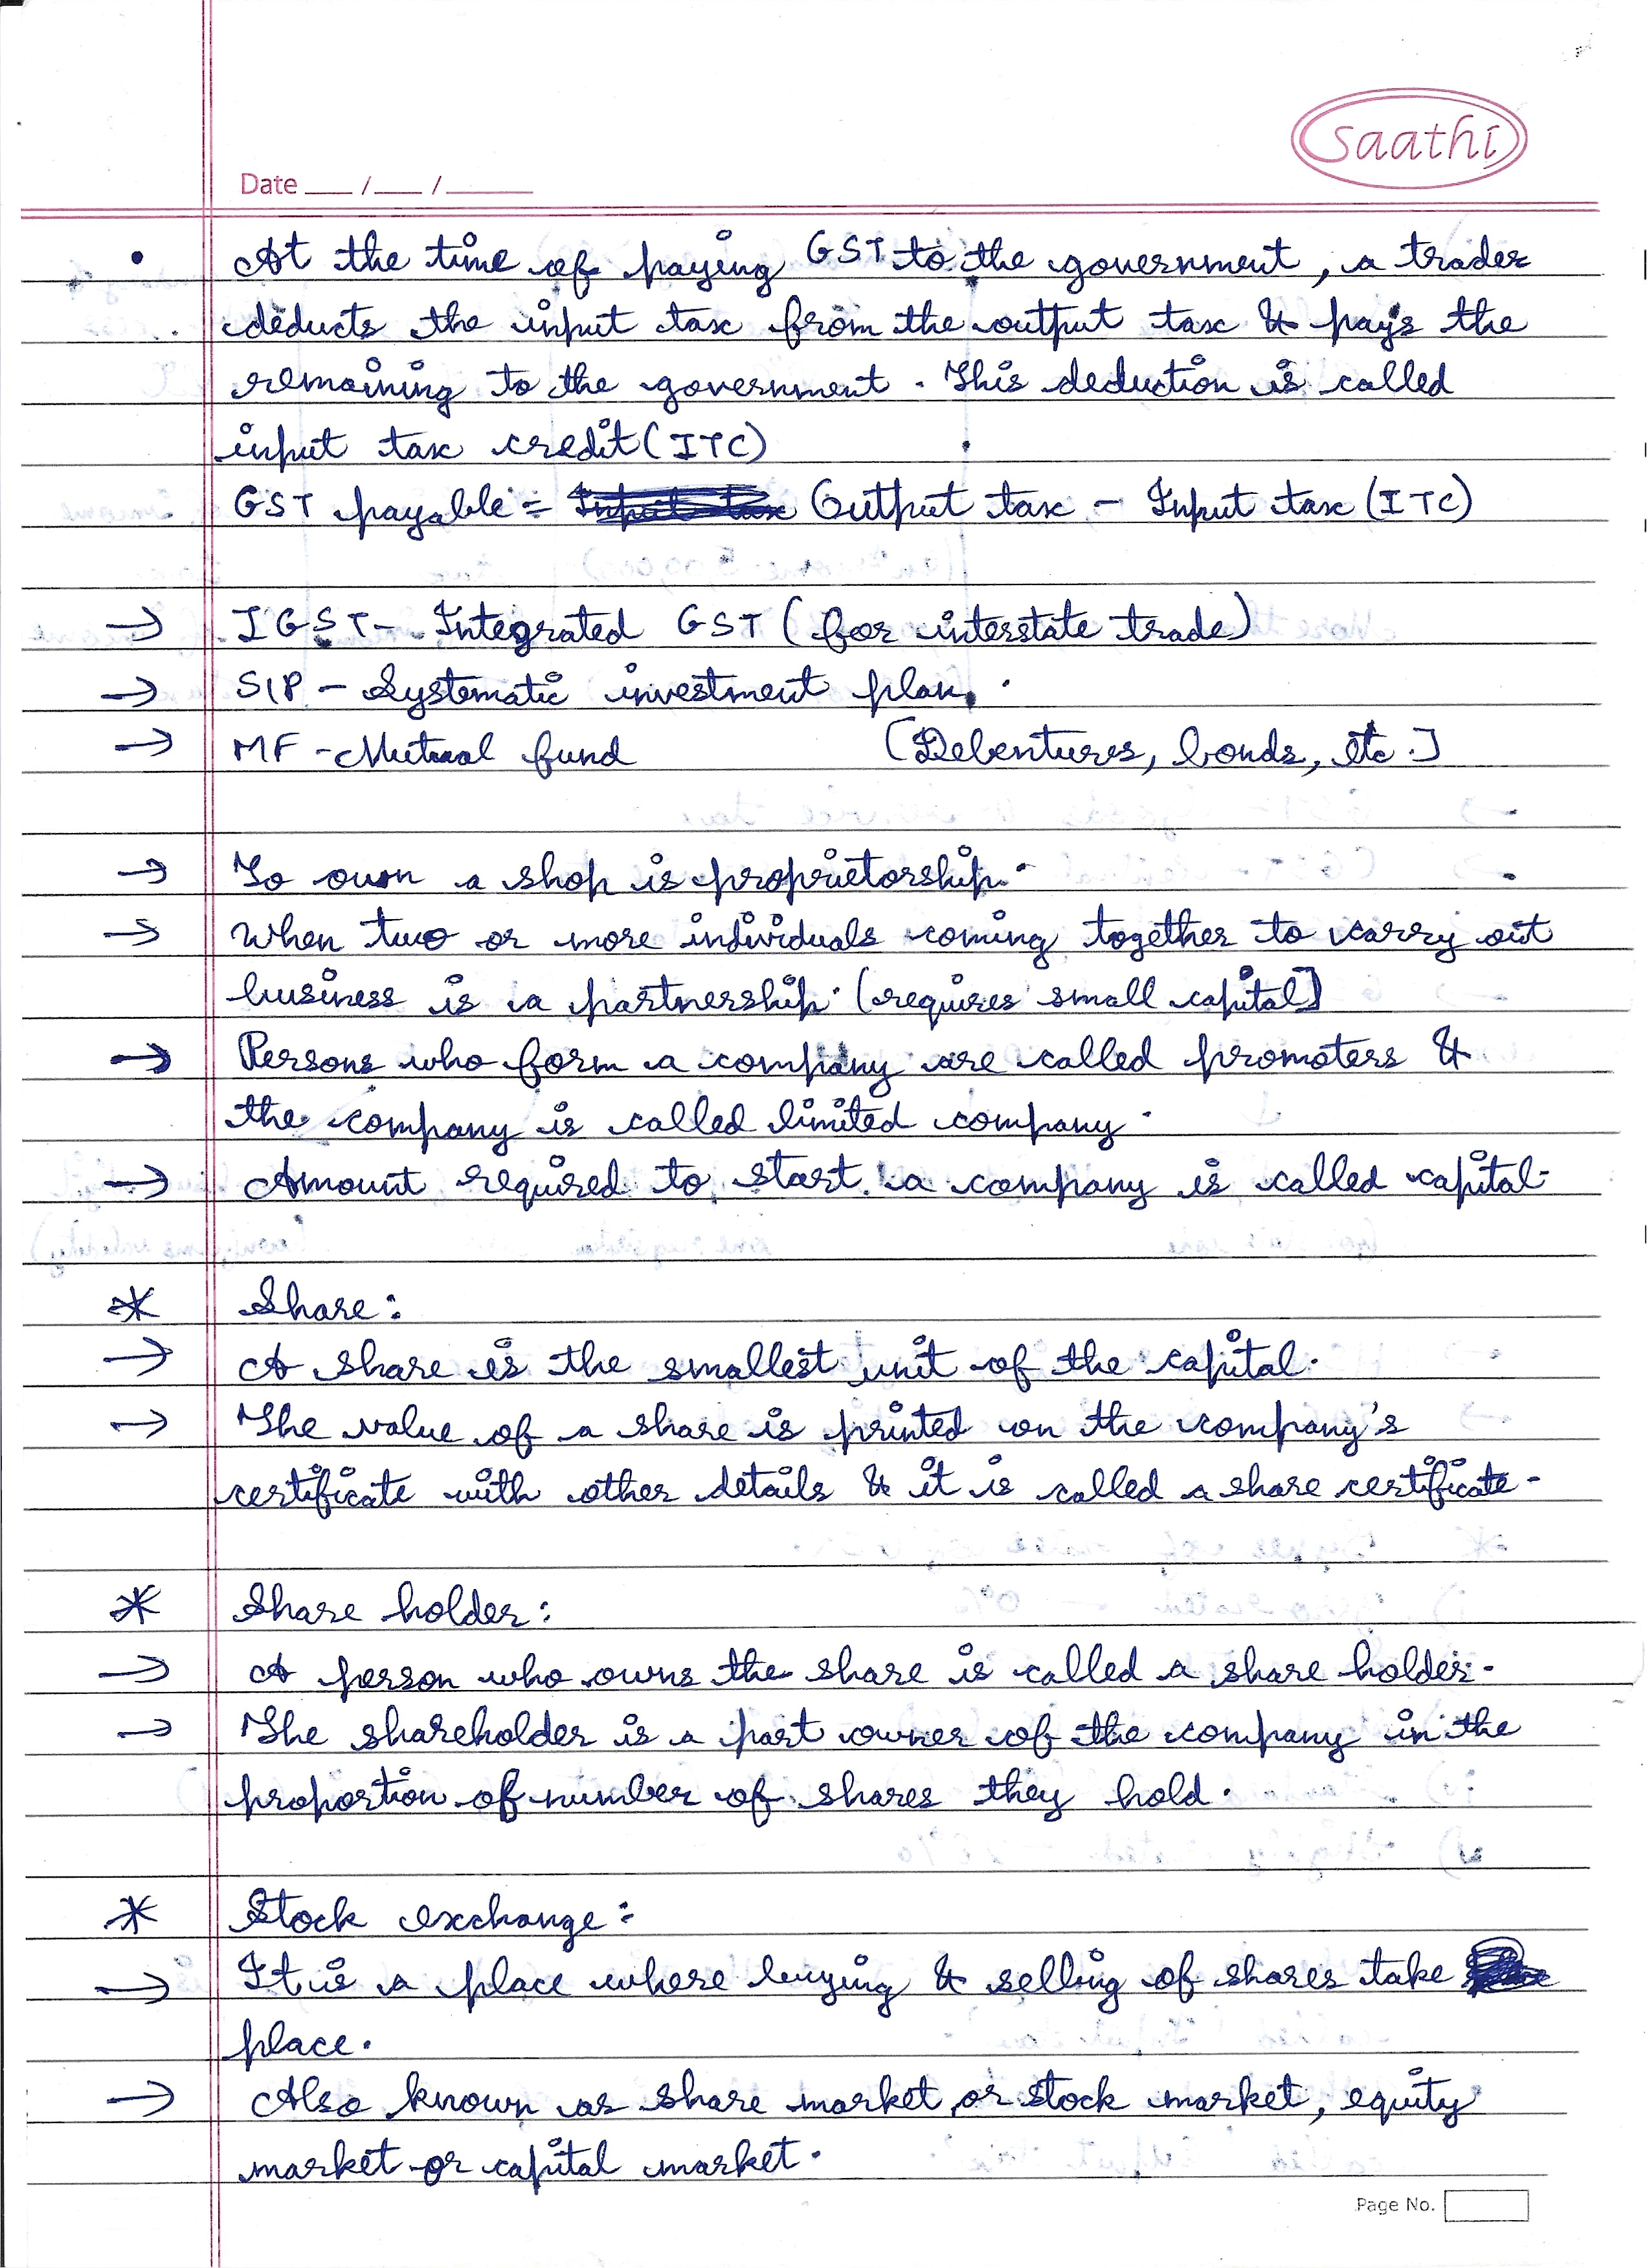 saathi
Date ___/___/______
• At the time of paying GST to the government, a trader
deducts the input tax from the output tax & pays the
remaining to the government. This deduction is called
input tax credit (ITC)
GST payable = Output tax - Input tax (ITC)
→ IGST - Integrated GST (for interstate trade)
→ SIP - Systematic investment plan.
→ MF - Mutual fund [Debentures, bonds, etc.]
→ To own a shop is proprietorship.
→ When two or more individuals coming together to carry out
business is a partnership. [requires small capital]
→ Persons who form a company are called promoters &
the company is called limited company.
→ Amount required to start a company is called capital.
* Share:
→ A share is the smallest unit of the capital.
→ The value of a share is printed on the company's
certificate with other details & it is called a share certificate.
* Share holder:
→ A person who owns the share is called a share holder.
→ The shareholder is a part owner of the company in the
proportion of number of shares they hold.
* Stock exchange:
→ It is a place where buying & selling of shares take
place.
→ Also known as share market or stock market, equity
market or capital market.
Page No.